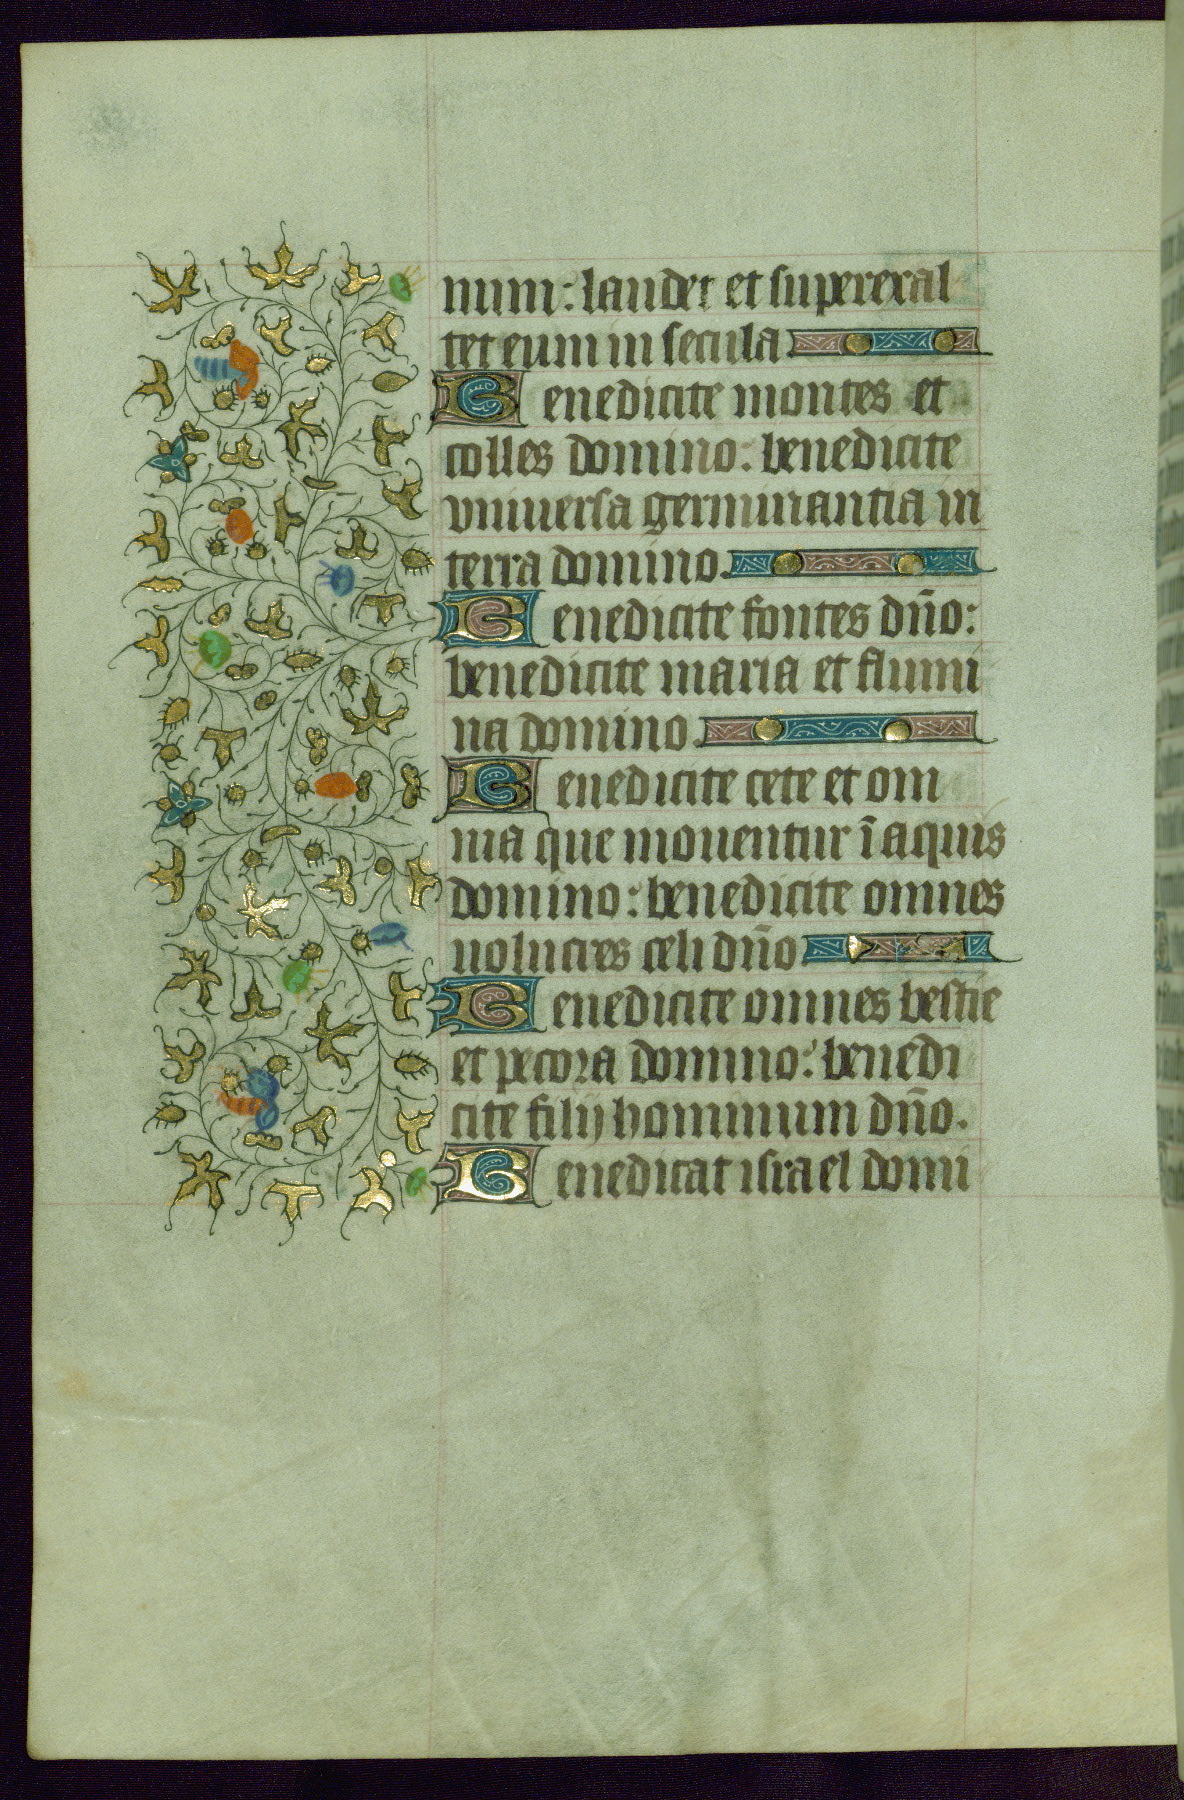 num: laudet et superexal
tet eum in secula
Benedicite montes et
colles domino: benedicite
vniuersa germinantia in
terra domino.
Benedicite fontes dn̄o:
benedicite maria et flumi
na domino.
Benedicite cete et om
nia que mouentur ī aquis
domino: benedicite omnes
uolucres celi dn̄o
Benedicite omnes bestie
et pecora domino: benedi
cite filij hominum dn̄o.
Benedicat israel domi